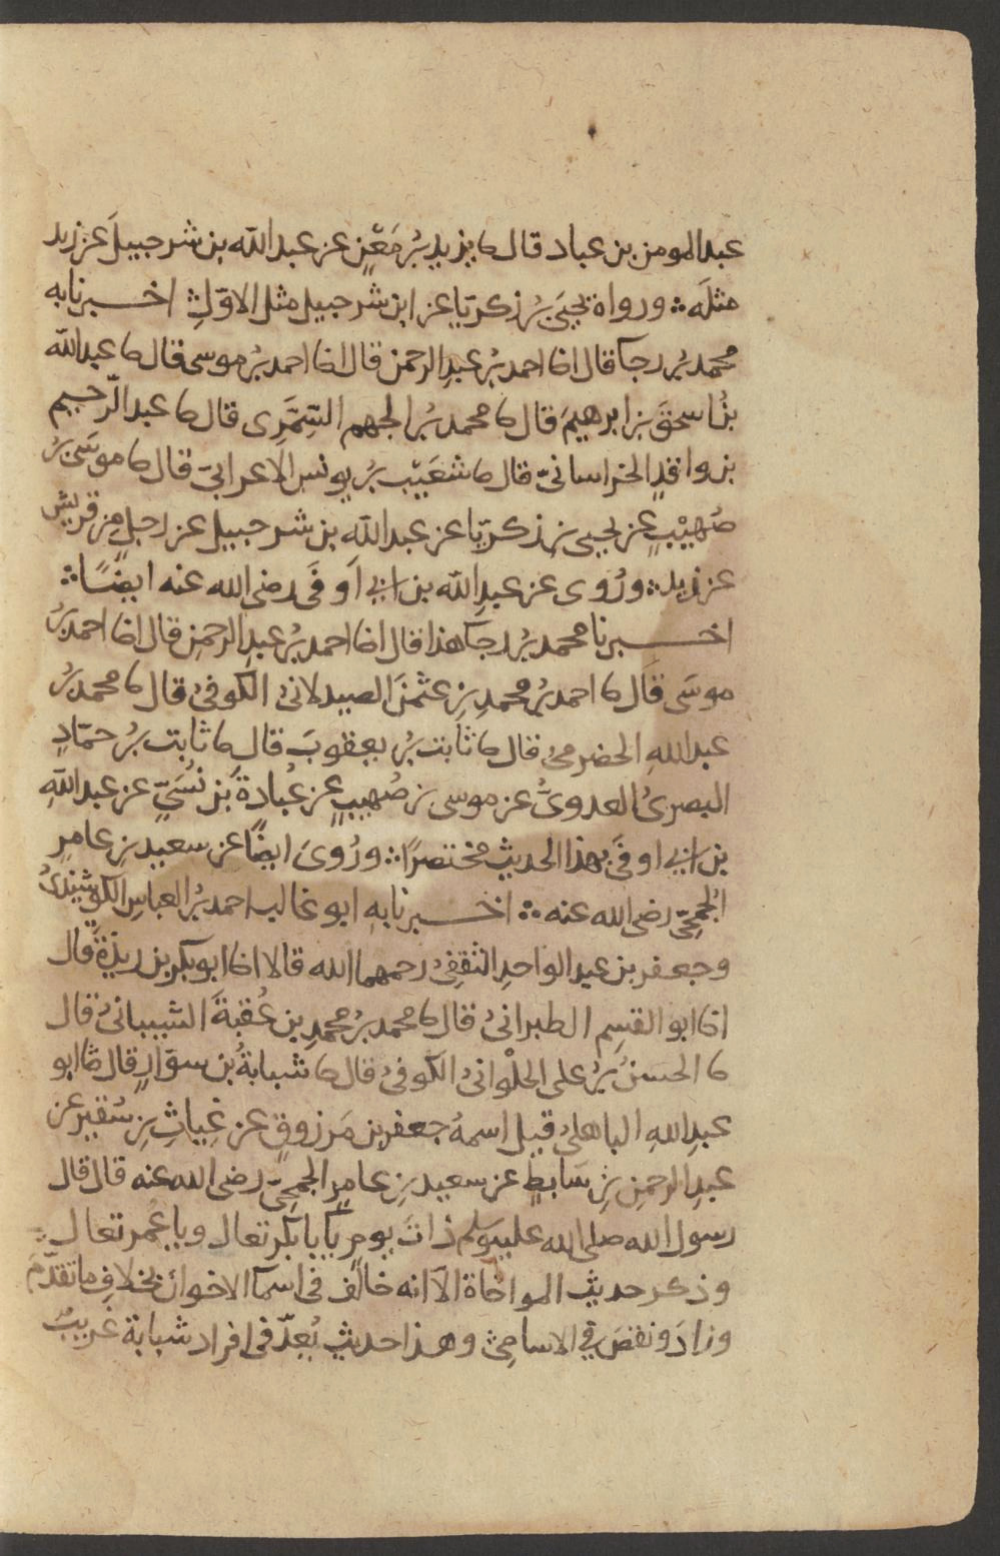 عبد المومن بن عباد قال نا يزيد بنُ مَعْنٍ عن عبد الله بن شرحبيلَ عن زيد
مثلَه ؞ ورواه يحيَى بنُ زكريّا عن ابن شرحبيل مثل الاوّلِ ؞ اخبرنا به
محمد بنُ رجآ قال انا احمد بنُ عبدِ الرحمن قال انا احمد بنُ موسى قال نا عبد الله
بنُ اسحقَ بنِ ابرهيمَ قال نا محمد بنُ الجهم السِّمَّرِى قال نا عبد الرّحيم
بن واقدٍ الخراسانىّ قال نا شعَيْب بنُ يونس الاعرابىّ قال نا موسَى بنُ
صُهيْبٍ عن يحيى بنِ زكريّا عن عبد الله بن شرحبيل عن رجلٍ من قريش
عن زيد ؞ ورُوى عن عبدِ الله بن ابى اَوفَى رضى الله عنه ايضًا ؞
اخبرنا محمد بنُ رجآ هذا قال انا احمد بنُ عبدِ الرحمنِ قال انا احمد بنُ
موسَى قَال نا احمد بنُ محمدِ بنِ عثمنَ الصيدلانىُ الكوفىُ قال نا محمد بنُ
عبد اللهِ الحضرمىُ قال نا ثابت بنُ يعقوبَ قال نا ثابت بنُ حمّادٍ
البصرىُ العدوىُّ عن موسى بن صُهيبٍ عن عُبادةَ بنَ نُسَىّ عن عبد اللهِ
بن ابى اوفَى بهذا الحديثِ مختصرًا ؞ ورُوىَ ايضًا عن سعيد بنِ عامرٍ
الجُمحِىّ رضى الله عنه ؞ اخبرنا بهِ ابو غالب احمد بنُ العباسِ الكوشيذىُ
وجعفر بن عبد الواحدِ الثقفىُ رحمهما الله قالا انا ابو بكر بن ريذةَ قال
انا ابو القسِم الطبرانىُ قال نا محمد بنُ محمدِ بن عُقبةَ الشيبانىُ قال
نا الحسنُ بنُ على الحلْوانىُ الكوفىُ قال نا شبابةُ بن سوّارٍ قال نا ابو
عبدِ اللهِ الباهلىُ قيل اسمهُ جعفر بن مَرزوقٍ عن غِياثِ بنِ شُقيرعن
عبدِ الرحمنِ بنِ سَابطٍ عن سعيد بنِ عامرٍ الجمحِىّ رضى الله عنه قال قال
رسول الله صلى الله عليه وسلم ذاتَ يومٍ يَا يابَكرٍ تعال ويا عُمر تعال ؞
وذكر حديث المواخاة الّا انه خالَف فى اسمآ الاخوان بخلافِ ما تقدّمَ
وزادَ ونقصَ فى الاسامِىْ وهذا حديث يُعدّ فى افراد شبابة غريبٌ